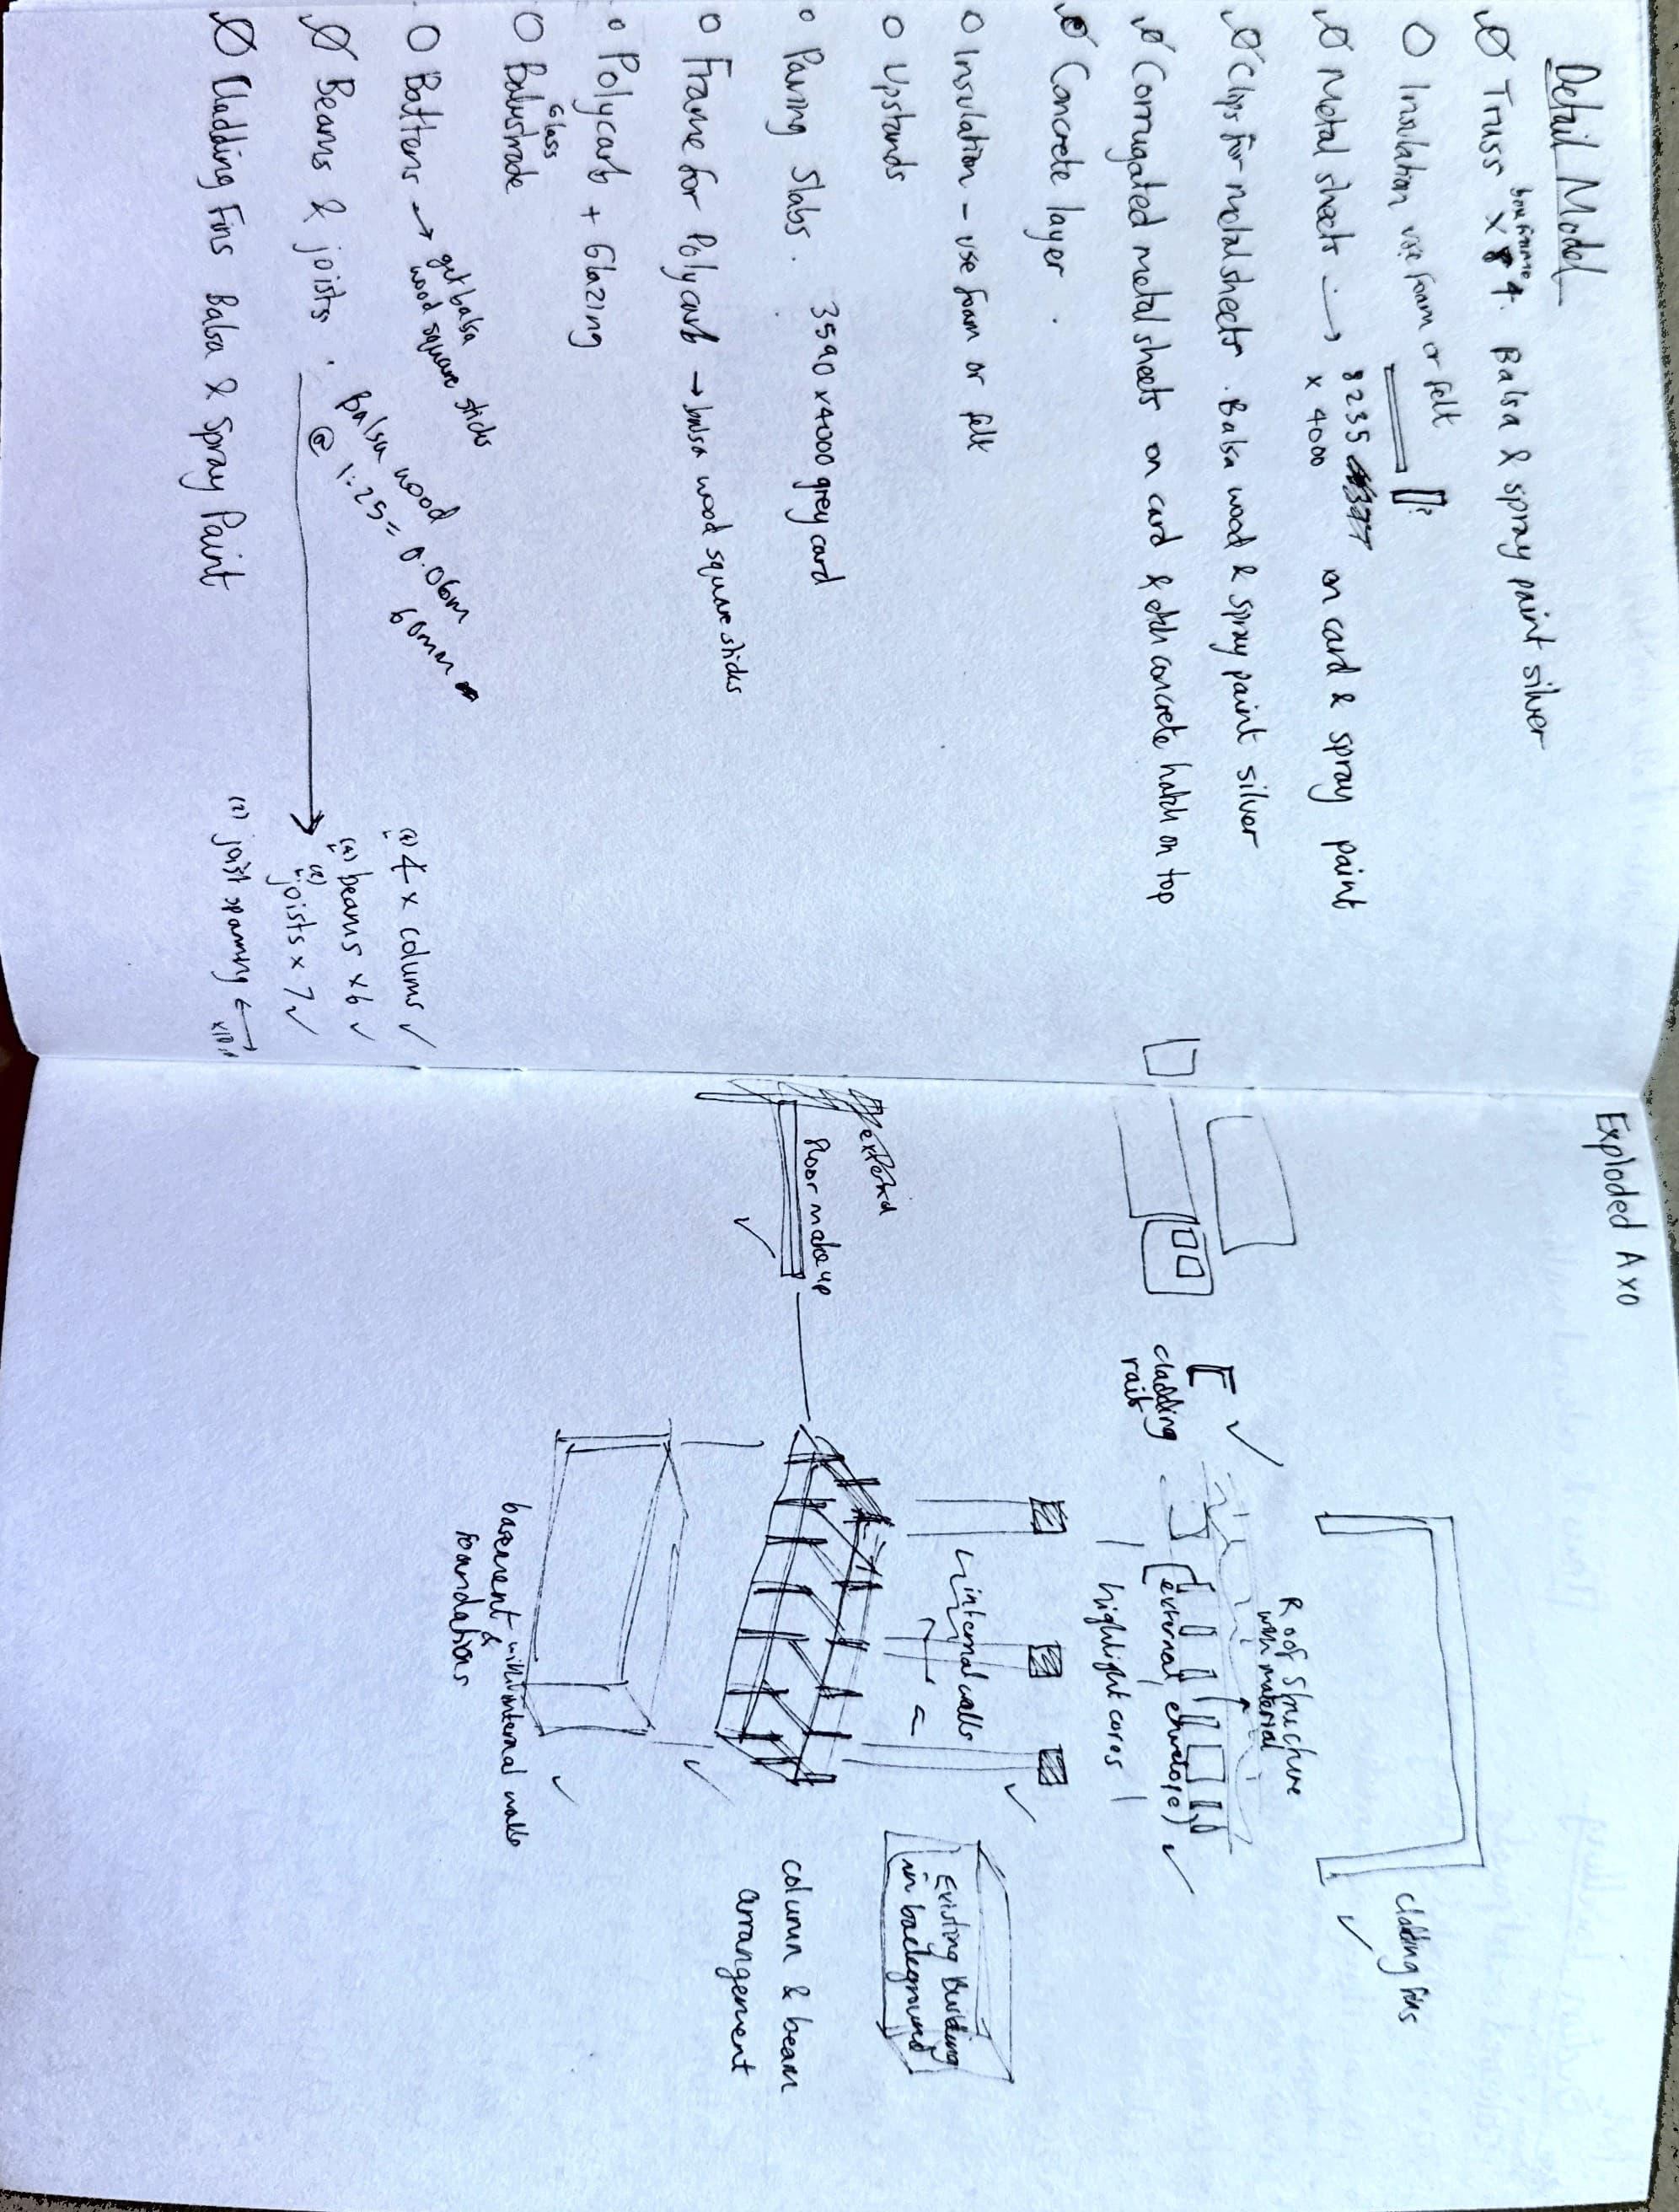 Detail Model
Truss box frame x 4. Balsa & spray paint silver
Insulation use foam or felt
Metal sheets → 8235 x 4000 on card & spray paint
Clips for metal sheets. Balsa wood & spray paint silver
Corrugated metal sheets on card & etch concrete hatch on top
Concrete layer.
Insulation - use foam or felt
Upstands
Paving Slabs. 3590 x 4000 grey card
Frame for Polycarb → balsa wood square sticks
Polycarb + Glazing
Glass
Balustrade
Battens → get balsa
wood square sticks
Beams & joists.
Balsa wood
@ 1:25 = 0.06m
60mm
(4) 4 x colums ✓
beams x 6 ✓
joists x 7 ✓
joist spanning ↔ x10
Cladding Fins Balsa & Spray Paint
Exploded Axo
cladding fins
Roof Structure
with material
cladding
rails
(external envelope)
highlight cores
internal walls
Existing Building
in background
floor make up
column & beam
arrangement
basement with internal walls
&
foundations